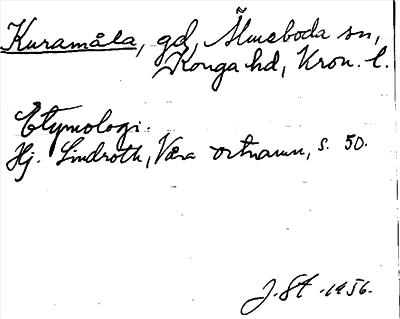 Kuramåla, gd, Älmeboda sn,
Konga hd, Kron. l.
Etymologi.
Hj. Lindroth, Våra ortnamn, s. 50.
J. St. 1956.